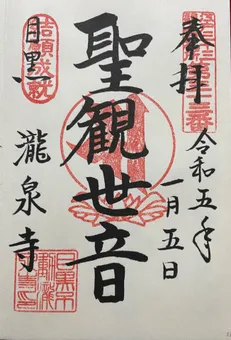 奉拝
令和五年
一月五日
聖観世音
目黒
瀧泉寺
諸願成就